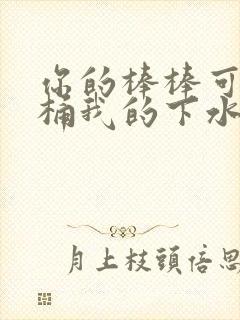 你的棒棒可
桶我的下水
月上枝頭倍思